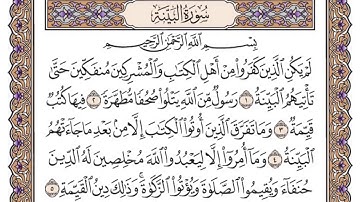 سُورَةُ الْبَيِّنَةِ
بِسْمِ اللَّهِ الرَّحْمَٰنِ الرَّحِيمِ
لَمْ يَكُنِ الَّذِينَ كَفَرُوا مِنْ أَهْلِ الْكِتَابِ وَالْمُشْرِكِينَ مُنفَكِّينَ حَتَّىٰ
تَأْتِيَهُمُ الْبَيِّنَةُ ١ رَسُولٌ مِّنَ اللَّهِ يَتْلُوا صُحُفًا مُّطَهَّرَةً ٢ فِيهَا كُتُبٌ
قَيِّمَةٌ ٣ وَمَا تَفَرَّقَ الَّذِينَ أُوتُوا الْكِتَابَ إِلَّا مِن بَعْدِ مَا جَاءَتْهُمُ
الْبَيِّنَةُ ٤ وَمَا أُمِرُوا إِلَّا لِيَعْبُدُوا اللَّهَ مُخْلِصِينَ لَهُ الدِّينَ
حُنَفَاءَ وَيُقِيمُوا الصَّلَوٰةَ وَيُؤْتُوا الزَّكَوٰةَ وَذَٰلِكَ دِينُ الْقَيِّمَةِ ٥